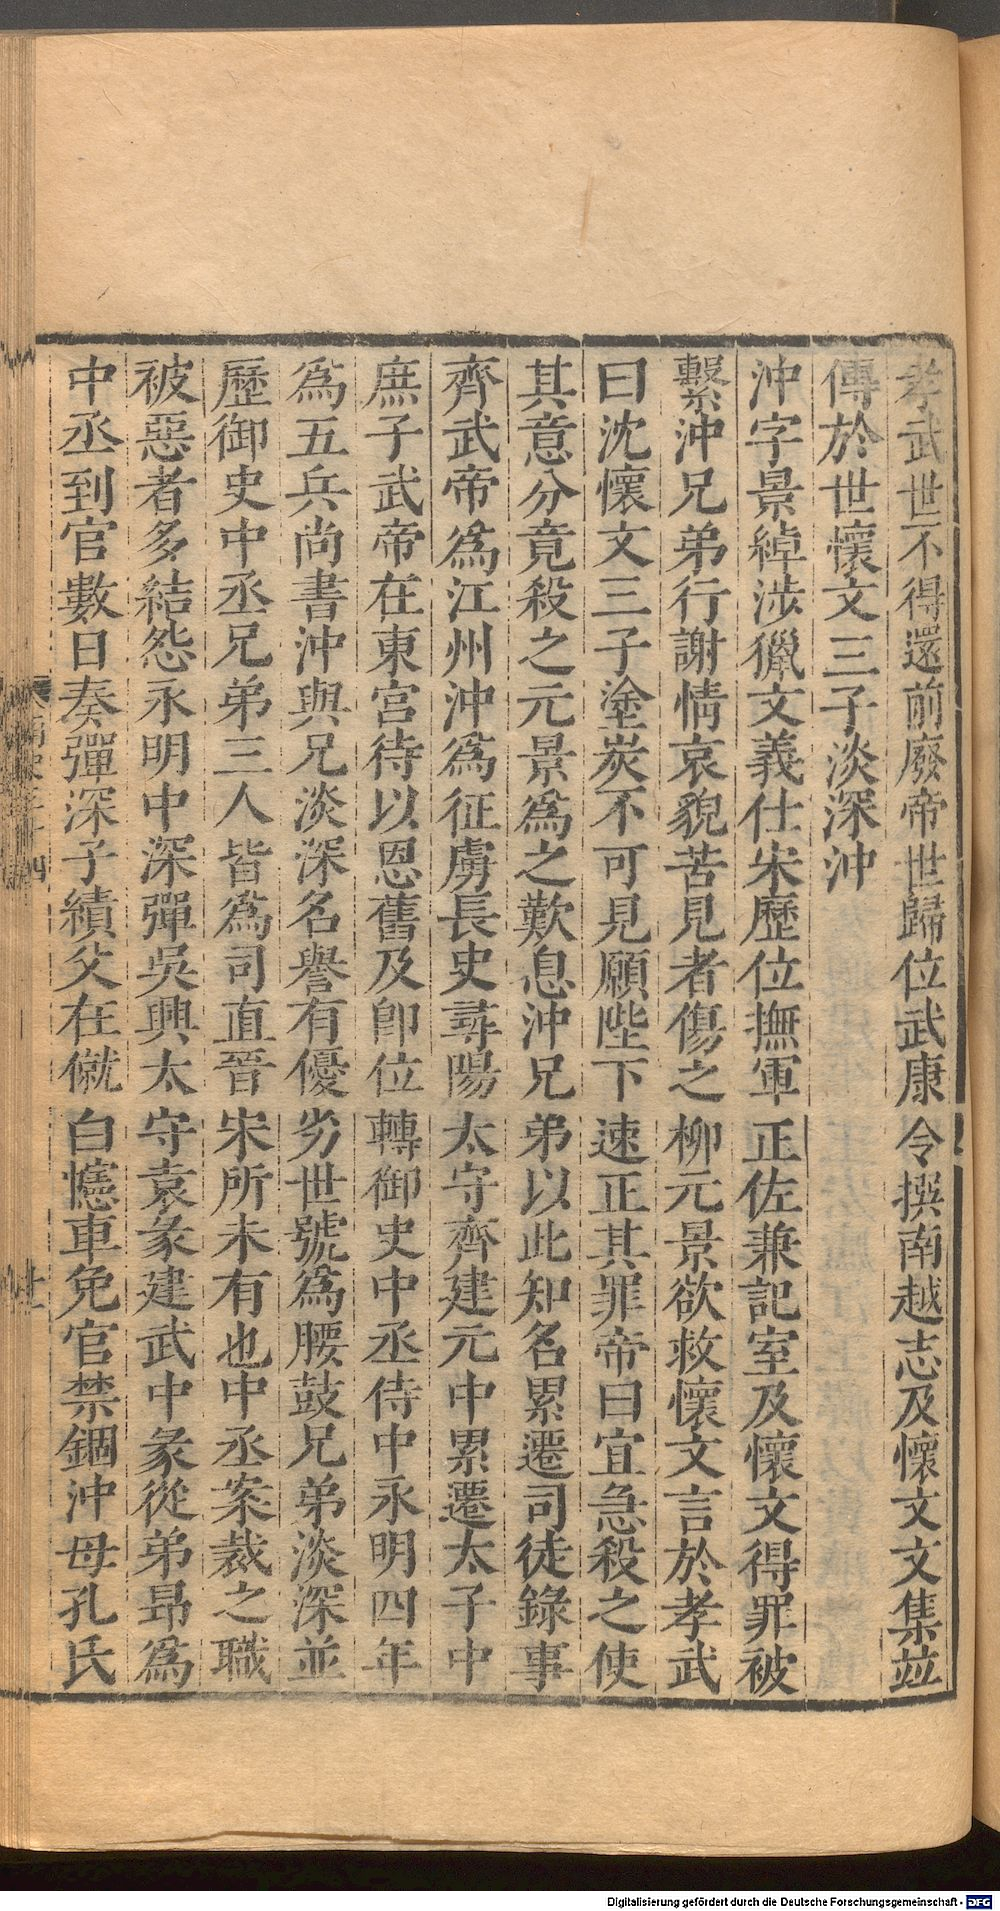 孝武世不得還前廢帝世歸位武康令撰南越志及懷文文集並
傳於世懷文三子淡深沖
沖字景綽涉獵文義仕宋歷位撫軍正佐兼記室及懷文得罪被
繫沖兄弟行謝情哀貌苦見者傷之柳元景欲救懷文言於孝武
曰沈懷文三子塗炭不可見願陛下速正其罪帝曰宜急殺之使
其意分竟殺之元景為之歎息沖兄弟以此知名累遷司徒錄事
齊武帝為江州沖為征虜長史尋陽太守齊建元中累遷太子中
庶子武帝在東宮待以恩舊及卽位轉御史中丞侍中永明四年
為五兵尚書沖與兄淡深名譽有優劣世號為腰鼓兄弟淡深並
歷御史中丞兄弟三人皆為司直晉宋所未有也中丞案裁之職
被惡者多結怨永明中深彈吳興太守袁彖建武中彖從弟昂為
中丞到官數日奏彈深子績父在僦白幰車免官禁錮沖母孔氏
Digitalisierung gefördert durch die Deutsche Forschungsgemeinschaft - DFG